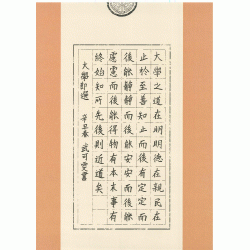 大學之道在明明德在親民在
止於至善知止而後有定定而
後能靜靜而後能安安而後能
慮慮而後能得物有本末事有
終始知所先後則近道矣
大學節選
辛丑春 武可雯書